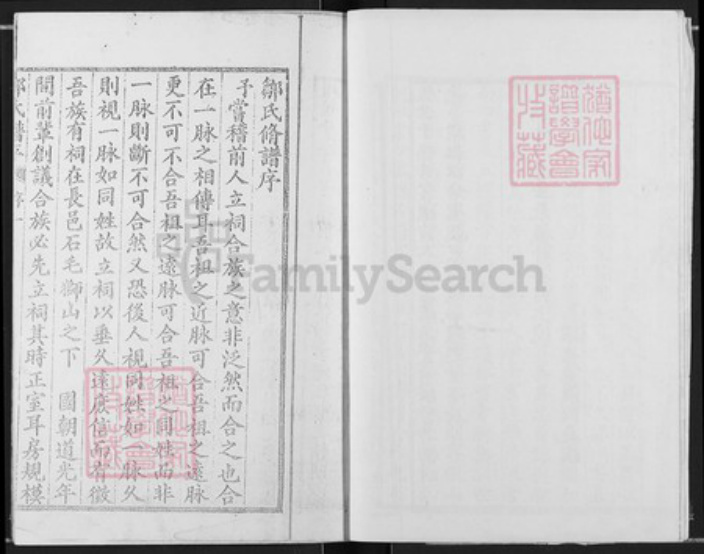 鄒氏脩譜序
予嘗稽前人立祠合族之意非泛然而合之也合
在一脉之相傳耳吾祖之近脉可合吾祖之遠脉
更不可不合吾祖之遠脉可合吾祖之同姓而非
一脉則斷不可合然又恐後人視同姓如一脉久
則視一脉如同姓故立祠以垂久遠庶信而有徵
吾族有祠在長邑石毛獅山之下 國朝道光年
間前輩創議合族必先立祠其時正室耳房規模
FamilySearch